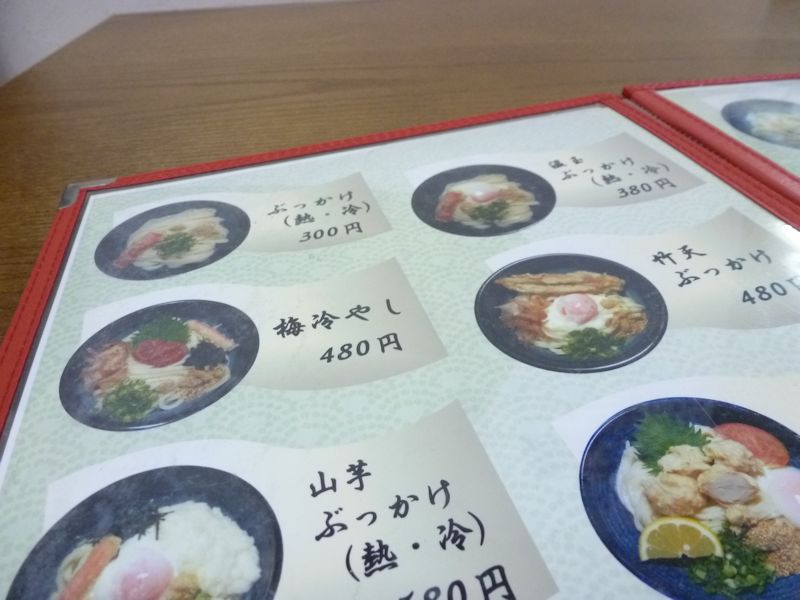 ぶっかけ
(熱・冷)
300円
温玉
ぶっかけ
(熱・冷)
380円
梅冷やし
480円
竹天
ぶっかけ
480円
山芋
ぶっかけ
(熱・冷)
80円